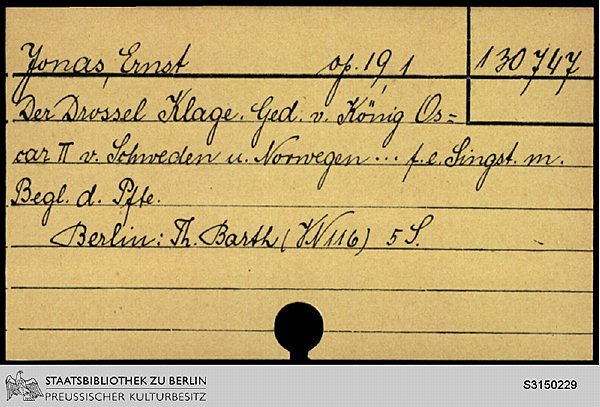 Jonas, Ernst op. 19, 1 130747
Der Drossel Klage. Ged. v. König Os=
car II v. Schweden u. Norwegen ... f. e. Singst. m.
Begl. d. Pfte.
Berlin: Th. Barth (VN 116) 5 S.
STAATSBIBLIOTHEK ZU BERLIN
PREUSSISCHER KULTURBESITZ
S3150229